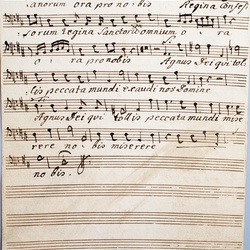 anorum ora pro nobis Regina Confes
sorum Regina Sanctorum omnium o ra
o ra pro nobis Agnus Dei qui tol
lis peccata mundi exaudi nos Domine
Agnus Dei qui tollis peccata mundi mise
rere nobis miserere
nobis.